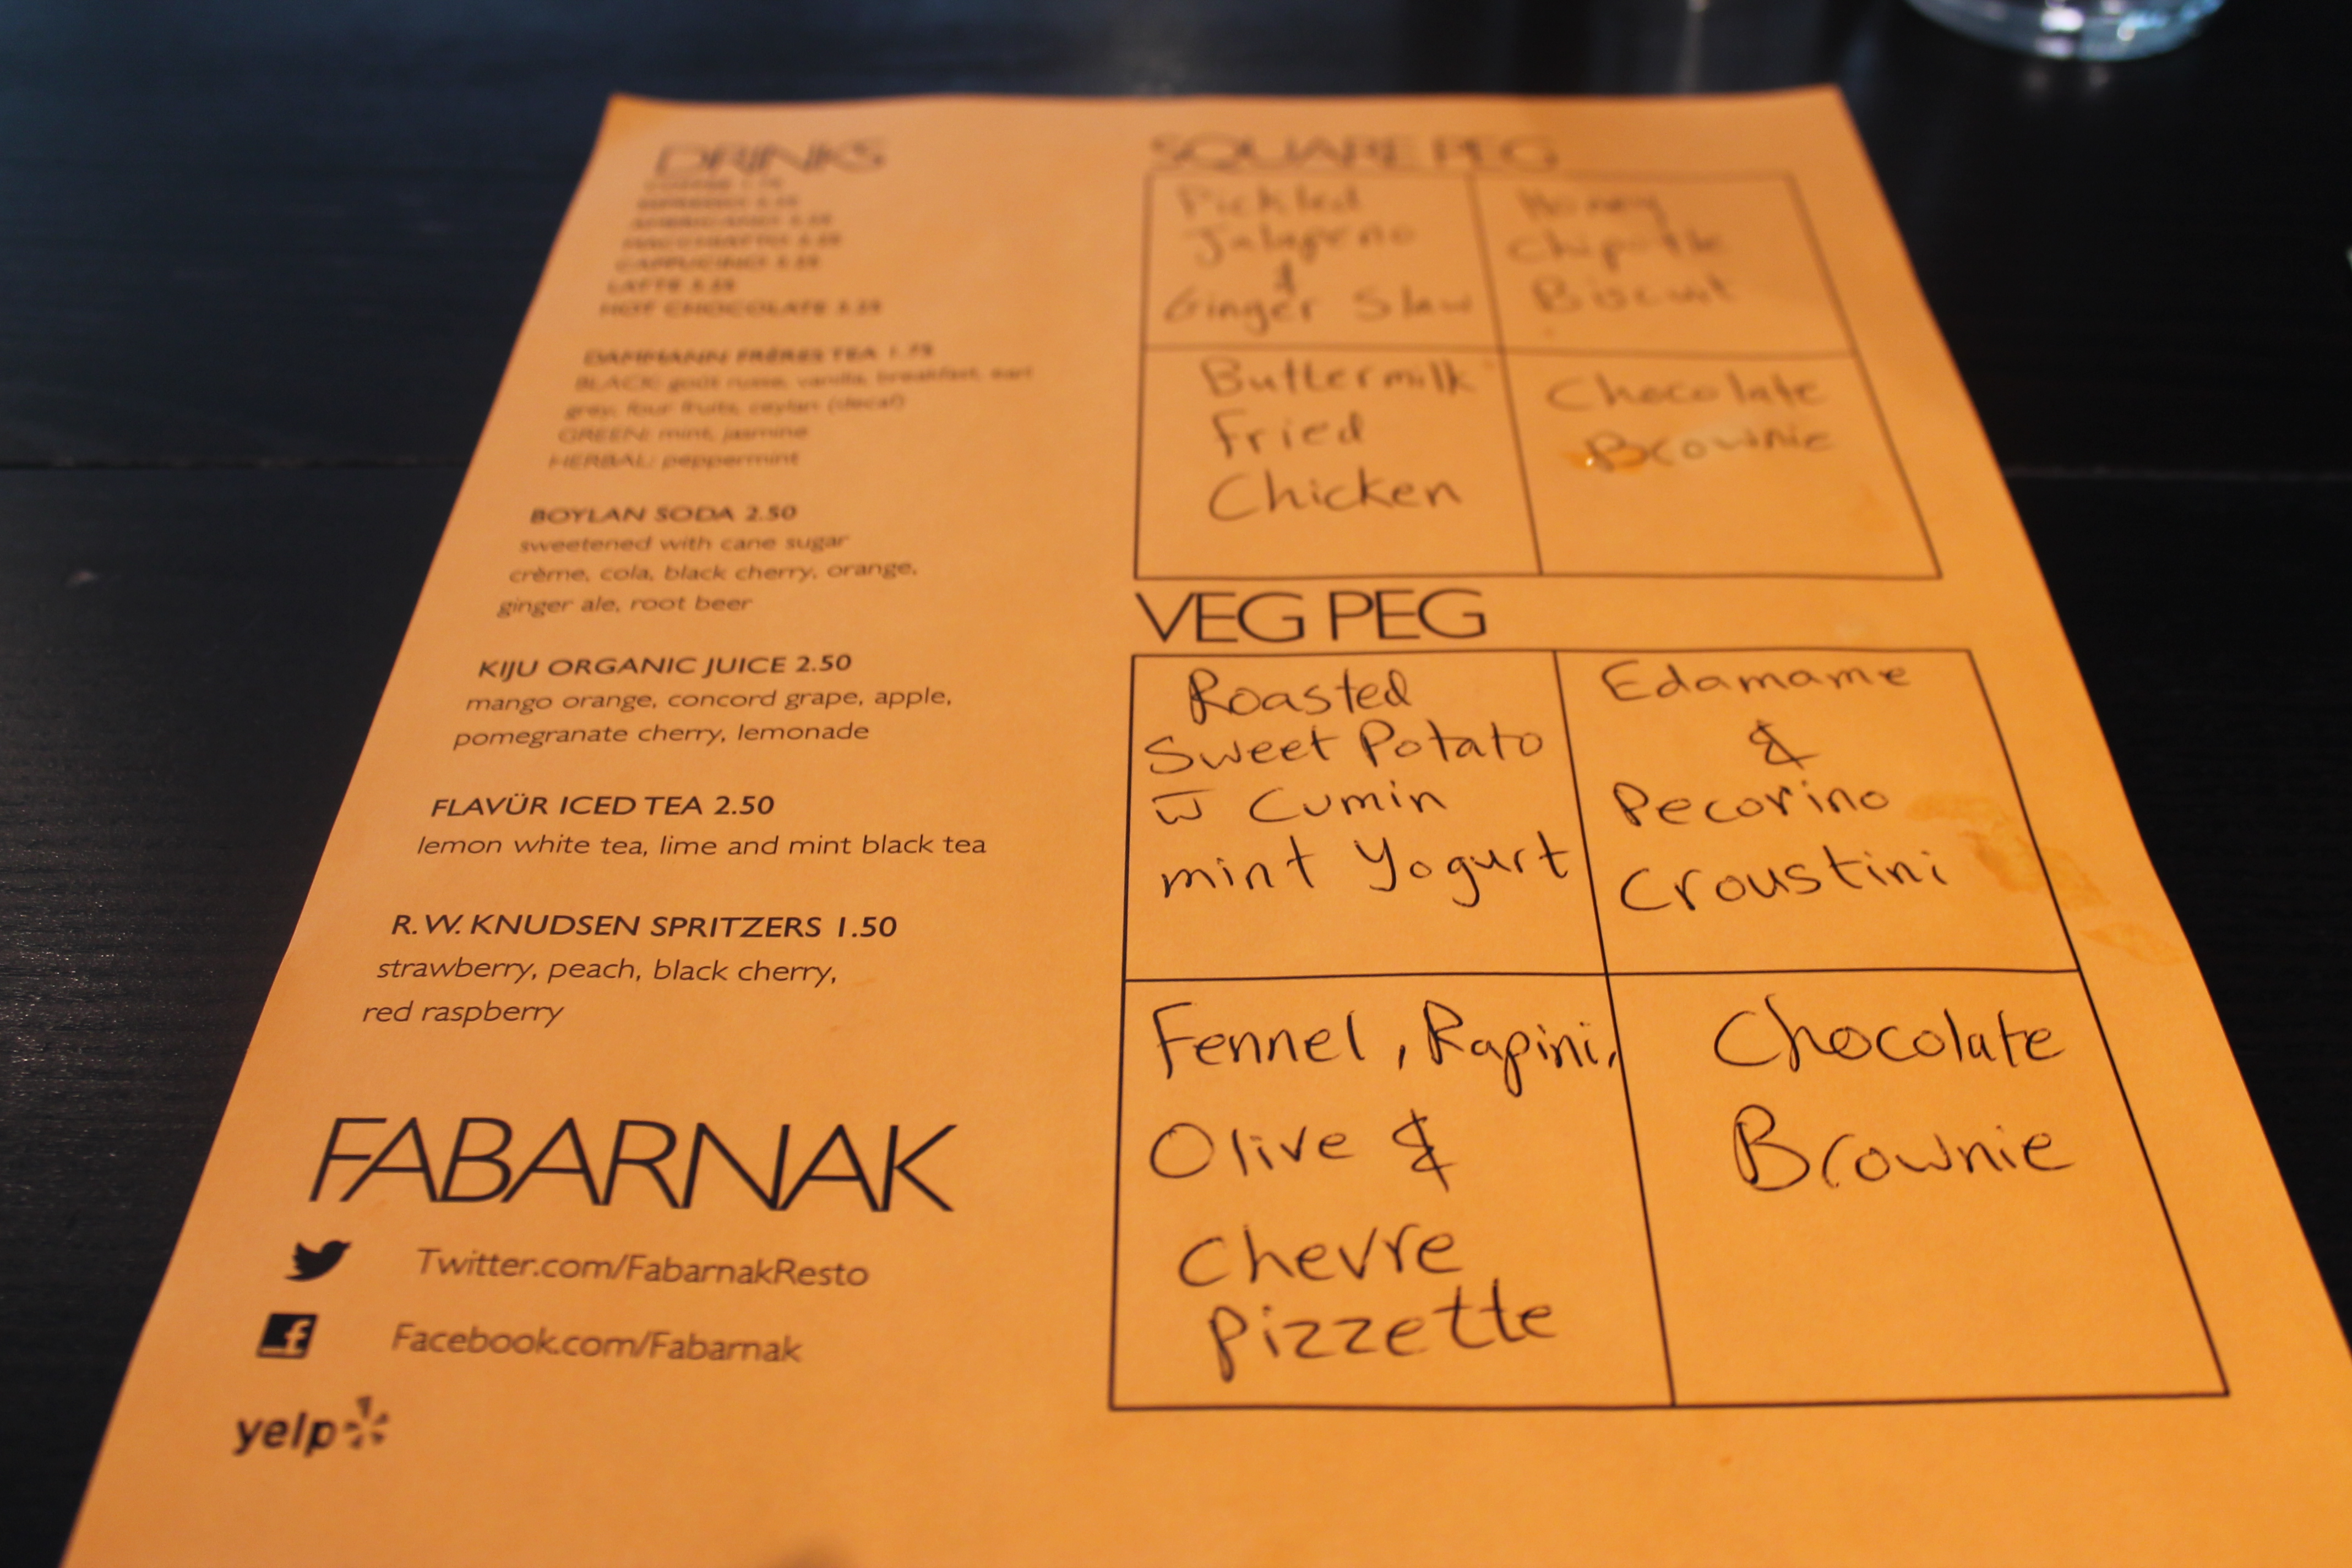 DRINKS
LATTE
HOT CHOCOLATE 3.25
DAMMANN FRÈRES TEA 1.75
BLACK: goût russe, vanilla, breakfast, earl
grey, four fruits, ceylan (decaf)
GREEN: mint, jasmine
HERBAL: peppermint
BOYLAN SODA 2.50
sweetened with cane sugar
crème, cola, black cherry, orange,
ginger ale, root beer
KIJU ORGANIC JUICE 2.50
mango orange, concord grape, apple,
pomegranate cherry, lemonade
FLAVÜR ICED TEA 2.50
lemon white tea, lime and mint black tea
R.W. KNUDSEN SPRITZERS 1.50
strawberry, peach, black cherry,
red raspberry
FABARNAK
Twitter.com/FabarnakResto
Facebook.com/Fabarnak
yelp
SQUARE PEG
Pickled
Jalapeno
&
Ginger Slaw
Honey
Chipotle
Biscuit
Buttermilk
Fried
Chicken
Chocolate
Brownie
VEG PEG
Roasted
Sweet Potato
w Cumin
mint Yogurt
Edamame
&
Pecorino
Croustini
Fennel, Rapini,
Olive &
Chevre
Pizzette
Chocolate
Brownie